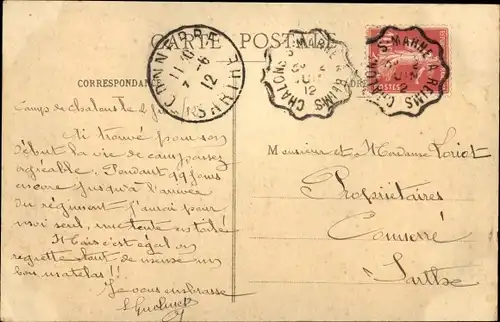 CARTE POSTALE
CORRESPONDANCE
CONNERRÉ
SARTHE
7-6
12
CHALONS S. MARNE A REIMS
JUIN
12
CHALONS S. MARNE A REIMS
POSTES
Camp de Chalons le 2 juin
Ai trouvé pour son
début la vie de camp assez
agréable. Pendant 19 jours
encore jusqu'à l'arrivée
du régiment j'aurai pour
moi seul, une tente
Mais c'est égal on
regrette tout de même un
bon matelas!!
Je vous embrasse
Monsieur et Madame Loriot
Propriétaires
Connerré
Sarthe